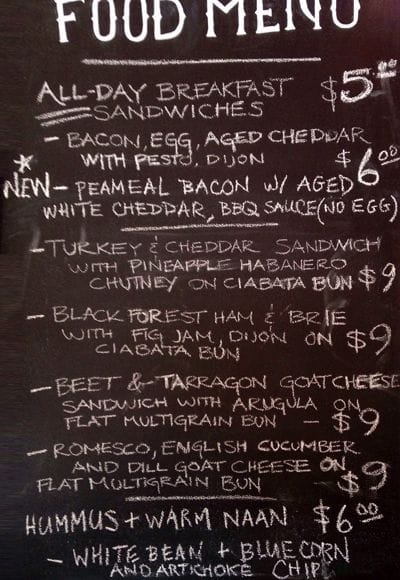 FOOD MENU
ALL-DAY BREAKFAST $5.00
SANDWICHES
- BACON, EGG, AGED CHEDDAR
WITH PESTO, DIJON $6.00
NEW - PEAMEAL BACON W/ AGED
WHITE CHEDDAR, BBQ SAUCE (NO EGG)
- TURKEY & CHEDDAR SANDWICH
WITH PINEAPPLE HABANERO
CHUTNEY ON CIABATA BUN $9
- BLACK FOREST HAM & BRIE
WITH FIG JAM, DIJON ON $9
CIABATA BUN
- BEET & TARRAGON GOATCHEESE
SANDWICH WITH ARUGULA ON
FLAT MULTIGRAIN BUN - $9
- ROMESCO, ENGLISH CUCUMBER
AND DILL GOAT CHEESE ON
FLAT MULTIGRAIN BUN - $9
HUMMUS + WARM NAAN $6.00
- WHITE BEAN + BLUE CORN
AND ARTICHOKE CHIP